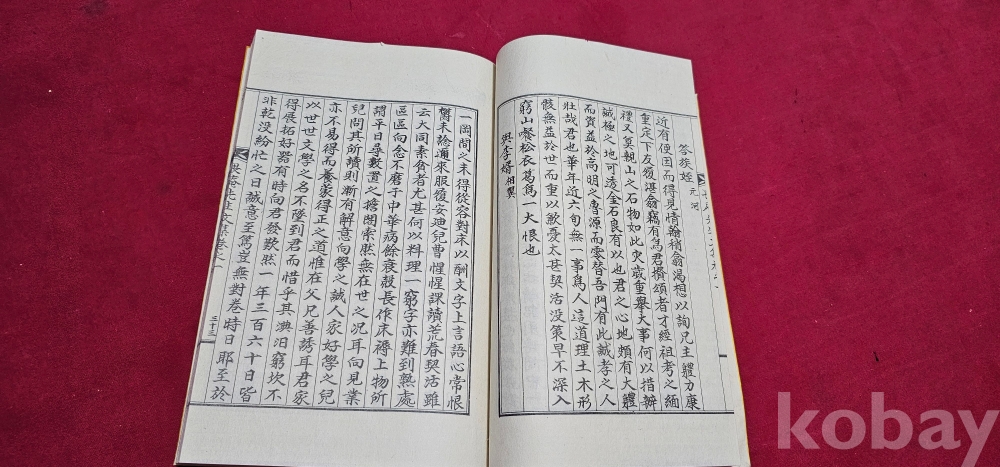 答族姪 元河
近有便因而得見情翰稍翁渴想以詢兄主體力康
重定下友復湛翕竊有爲君攢頌者才經祖考之緬
禮又莫親山之石物如此灾歲重舉大事何以措辦
誠極之地可透金石良有以也君之心地頗有大軆
而資益於高明之曺源而零替吾門有此誠孝之人
壯哉君也華年近六旬無一事爲人這道理土木形
骸無益於世而重以歉憂太甚契活没策早不深入
窮山餐松衣葛爲一大恨也
與李婿相翼
一岡間之未得從容對床以酬文字上言語心常恨
嚮未諗瀕來服復安迪兒曹惺惺課讀荒春契活雖
云大同素貧者尤甚何以料理一窮字亦難到熟處
區區向念不磨于中華病餘衰殺長作床褥上物所
謂平日尋數置之擔閣索然無在世之况耳向見業
兒問其所讀則漸有解意向學之誠人家好學之兒
亦不易得而養蒙得正之道惟在父兄善誘耳君家
以世世文學之名不墜到君而惜乎其淟汩窮坎不
得展拓好器有時向君發歎然一年三百六十日皆
非乾没紛忙之日誠意至篤豈無對卷時日耶至於
先生文集卷之一
三十三
kobay